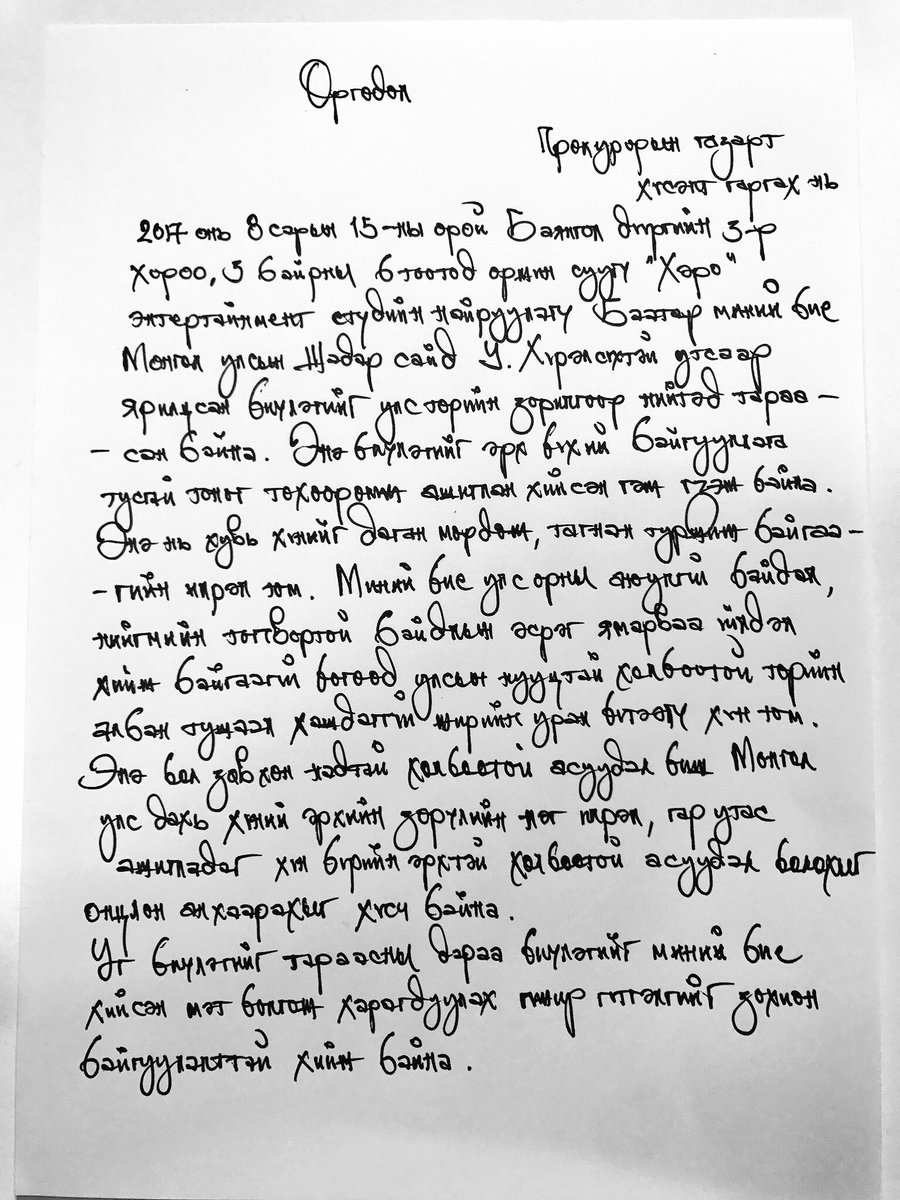 Өргөдөл
Прокурорын газарт
хүсэлт гаргах нь
2017 оны 8 сарын 15-ны орой Баянгол дүүргийн 3-р
хороо, 3 байрны 6 тоотод оршин суугч "Хэро"
энтертайнмент студийн найруулагч Баатар миний бие
Монгол улсын Шадар сайд У. Хүрэлсүхтэй утсаар
ярилцсан бичлэгийг улс төрийн зорилгоор нийтэд тараа-
- сан байна. Энэ бичлэгийг эрх бүхий байгууллага
тусгай тоног төхөөрөмж ашиглан хийсэн гэж үзэж байна.
Энэ нь хувь хүнийг даган мөрдөж, тагнан туршиж байгаа-
- гийн илрэл юм. Миний бие улс орны аюулгүй байдал,
нийгмийн тогтвортой байдлын эсрэг ямарваа үйлдэл
хийж байгаагүй бөгөөд улсын нууцтай холбоотой төрийн
албан тушаал хашдаггүй жирийн уран бүтээлч хүн юм.
Энэ бол зөвхөн надтай холбоотой асуудал биш Монгол
улс дахь хүний эрхийн зөрчлийн нэг илрэл, гар утас
ашигладаг хүн бүрийн эрхтэй холбоотой асуудал болохыг
онцлон анхаарахыг хүсч байна.
Уг бичлэгийг тараасны дараа бичлэгийг миний бие
хийсэн мэт болгож харагдуулах гүжир гүтгэлгийг зохион
байгуулалттай хийж байна.